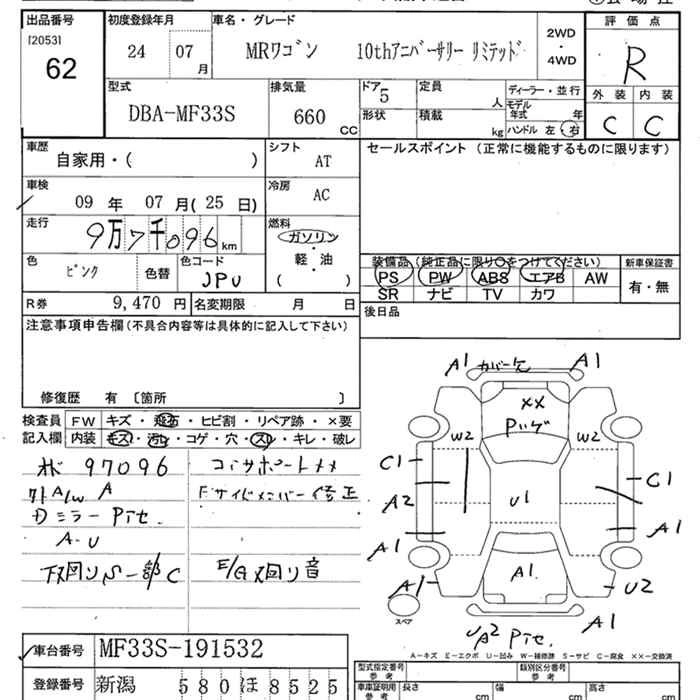 出品番号
[2053]
62
初度登録年月
24 07月
車名・グレード
MRワゴン 10thアニバーサリー リミテッド
2WD
・
4WD
評価点
R
外装 内装
C C
型式
DBA-MF33S
排気量
660 CC
ドア 5
形状
定員 人
積載 kg
ディーラー・並行
モデル年式 年
ハンドル 左・右
車歴
自家用・( )
シフト AT
セールスポイント (正常に機能するものに限ります)
車検
09年 07月(25日)
冷房 AC
走行
9万7千096km
燃料
ガソリン
・
軽・油
( )
色 ピンク
色替
色コード JPU
装備品(純正品に限り○をつけてください)
PS PW ABS エアB AW
SR ナビ TV カワ
新車保証書
有・無
R券 9,470円
名変期限 月 日
後日品
注意事項申告欄(不具合内容等は具体的に記入して下さい)
修復歴 有 〔箇所 〕
検査員記入欄
FW キズ・飛石・ヒビ割・リペア跡・×要
内装 キズ・汚レ・コゲ・穴・スレ・キレ・破レ
97096
コアサポートメメ
外A/W A
Fサイドメンバー修正
ミラー Pite.
A-U
下廻りS 一部C
E/G廻り音
A1 カバーケ A1
××
W2 W2
C1 C1
A2
U1
A1 A1
A1
A1 U2
スペア
A1
UA2 Pite.
A-キズ E-エクボ U-凹み W-補修跡 S-サビ C-腐食 ××-交換済
車台番号 MF33S-191532
登録番号 新潟 580 ほ 8525
型式指定番号 参考
類別区分番号 参考
車庫証明用 参考
長さ cm
幅 cm
高さ cm